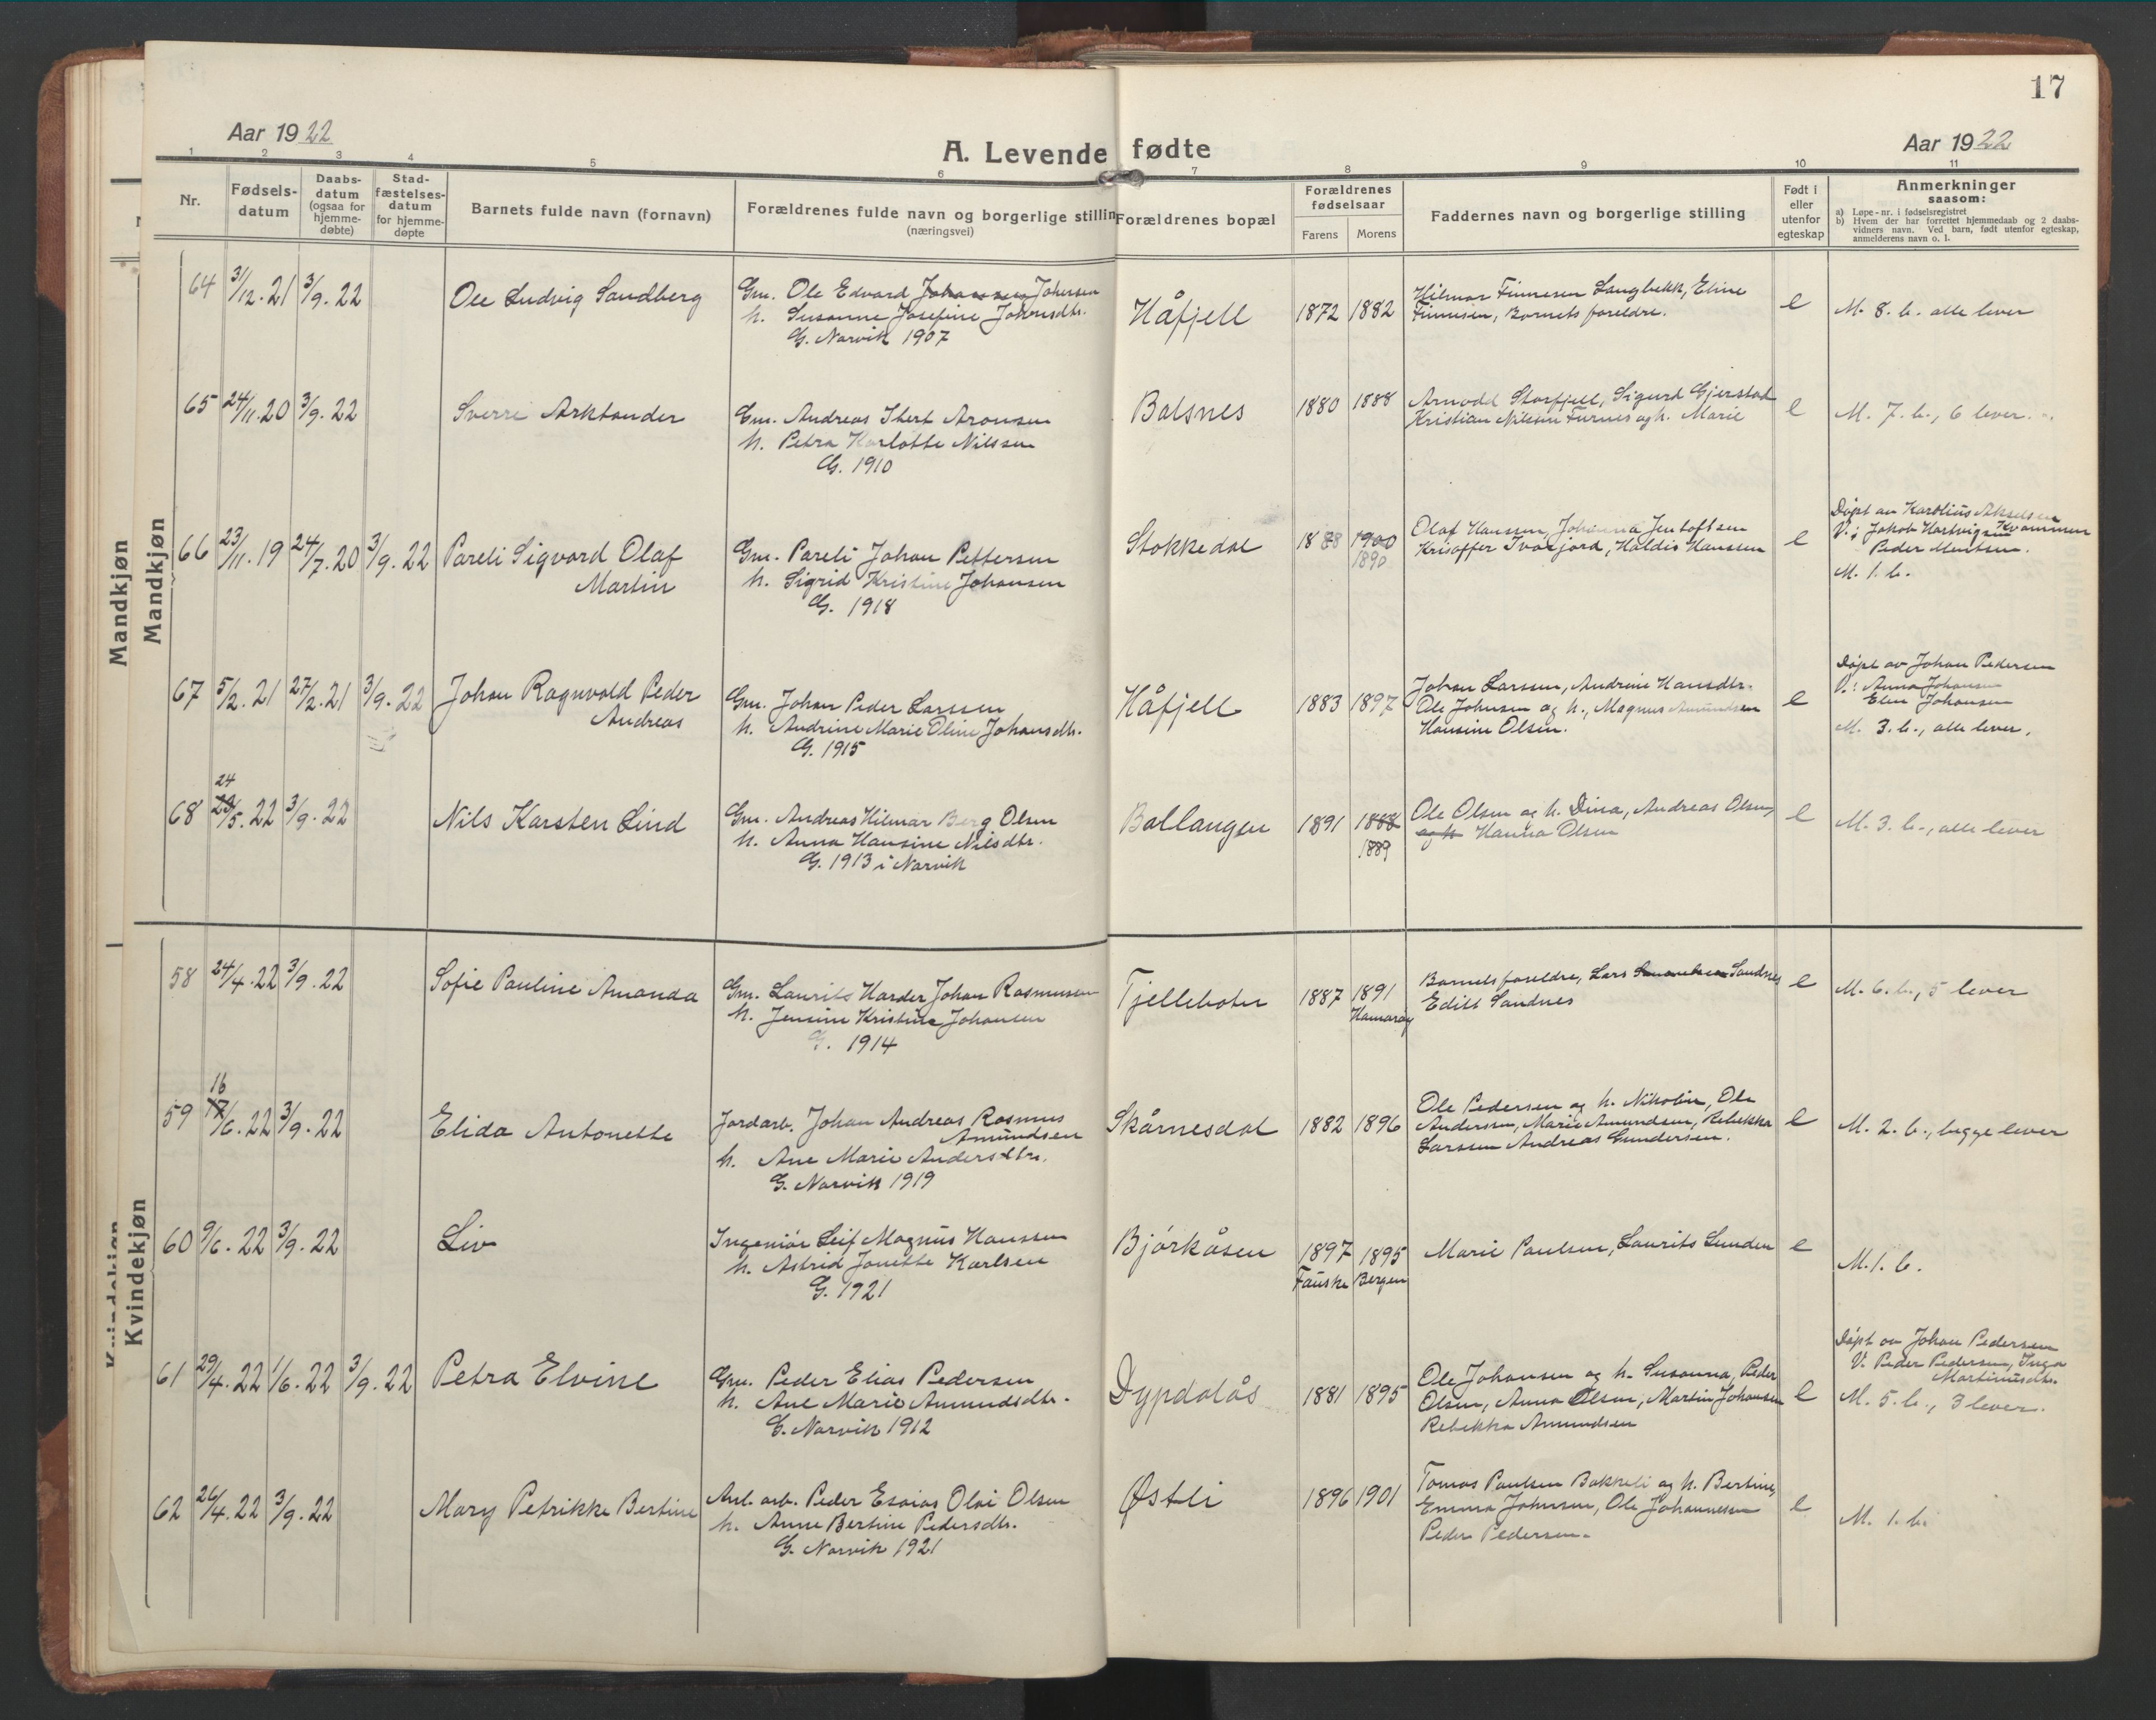 17
Aar 1922
A. Levende fødte
Aar 1922
1 2 3 4 5 6 7 8 9 10 11
Nr.
Fødsels-
datum
Daabs-
datum
(ogsaa for
hjemme-
døbte)
Stad-
fæstelses-
datum
for hjemme-
døpte
Barnets fulde navn (fornavn)
Forældrenes fulde navn og borgerlige stillin
(næringsvei)
Forældrenes bopæl
Forældrenes
fødselsaar
Farens Morens
Faddernes navn og borgerlige stilling
Født i
eller
utenfor
egteskap
Anmerkninger
saasom:
a) Løpe-nr. i fødselsregistret
b) Hvem der har forrettet hjemmedaab og 2 daabs-
vidners navn. Ved barn, født utenfor egteskap,
anmelderens navn o. l.
Mandkjøn
Mandkjøn
64 31/12.21 3/9.22
Ole Ludvig Sandberg
Gm. Ole Edvard Johansen Johnsen
h. Susanne Josefine Johnsdtr.
G. Narvik 1907
Håfjell
1872 1882
Hilmar Finnesen Langbekk, Eline
Finnesen, Barnets foreldre.
e
M. 8. b. alle lever
65 24/11.20 3/9.22
Sverre Arktander
Gm. Andreas Ihert Aronsen
h. Petra Karlotte Nilssen
G. 1910
Balsnes
1880 1888
Arnodd Storfjell, Sigurd Gjerstad
Kristian Nilssen Furnes og h. Marie
e
M. 7. b., 6 lever.
66 23/11.19 24/7.20 3/9.22
Pareli Sigvard Olaf
Martin
Gm. Pareli Johan Pettersen
h. Sigrid Kristine Johansen
G. 1918
Stokkedal
1888 1900
1890
Olaf Hanssen, Johanna Jentoftsen
Krisoffer Ivarjord, Haldis Hanssen
e
Døpt av Karolius Akselsen
V.: Jakob Hartvigsen Kvammen
Peder Mentsen.
M. 1. b.
67 5/2.21 27/2.21 3/9.22
Johan Ragnvald Peder
Andreas
Gm. Johan Peder Larssen
h. Andrine Marie Oline Johansdtr.
G. 1915
Håfjell
1883 1897
Johan Larssen, Andrine Hansdtr.
Ole Johnsen og h., Magnus Amundsen
Hansine Olsen.
e
Døpt av Johan Pedersen
V.: Anna Johansen
Elen Johansen
M. 3. b., alle lever.
24
68 23/5.22 3/9.22
Nils Karsten Lind
Gm. Andreas Hilmar Berg Olsen
h. Anna Hansine Nilsdtr.
G. 1913 i Narvik
Ballangen
1891 1888
1889
Ole Olsen og h. Dina, Andreas Olsen,
og h Hanna Olsen
e
M. 3. b., alle lever
Kvindekjøn
58 24/4.22 3/9.22
Sofie Pauline Amanda
Gm. Laurits Harder Johan Rasmussen
h. Jensine Kristine Johansen
G. 1914
Tjellebotn
1887 1891
Hamarøy
Barnets foreldre, Lars Samuelsen Sandnes
Edist Sandnes
e
M. 6. b., 5 lever
16
59 17/6.22 3/9.22
Elida Antonette
Jordarb. Johan Andreas Rasmus
Amundsen
h. Ane Marie Andersdtr.
G. Narvik 1919
Skårnesdal
1882 1896
Ole Pedersen og h. Nikoline, Ole
Anderssen, Marie Amundsen, Rebekka
Larssen Andreas Gundersen.
e
M. 2. b., begge lever
60 9/6.22 3/9.22
Liv
Ingeniør Leif Magnus Hanssen
h. Astrid Jonette Karlsen
G. 1921
Bjørkåsen
1897 1895
Fauske Bergen
Marie Paulsen, Laurits Lunden
e
M. 1. b.
61 29/4.22 1/6.22 3/9.22
Petra Elvine
Gm. Peder Elias Pedersen
h. Ane Marie Amundsdtr.
G. Narvik 1912
Dypdalås
1881 1895
Ole Johansen og h. Susanna, Peder
Olsen, Anna Olsen, Martin Johansen
Rebekka Amundsen
e
Døpt av Johan Pedersen
V. Peder Pedersen, Inga
Martinusdtr.
M. 5. b., 3 lever.
62 26/4.22 3/9.22
Mary Petrikke Bertine
Anl. arb. Peder Esaias Olai Olsen
h. Anne Bertine Pedersdtr.
G. Narvik 1921
Østli
1896 1901
Tomas Paulsen Bakkeli og h. Bertine,
Emma Johnsen, Ole Johannesen
Peder Pedersen.
e
M. 1. b.